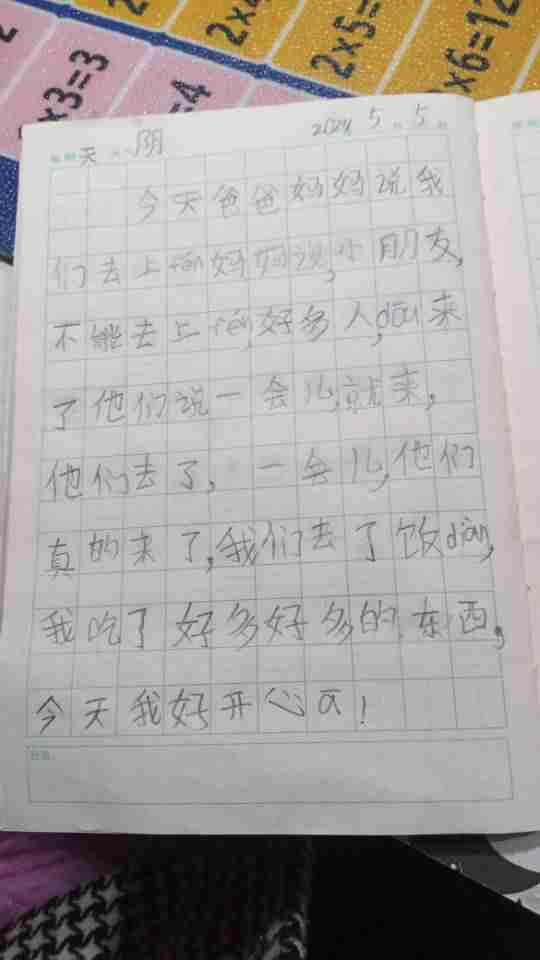 2×4
2×5=
2×6=12
2×3=3
=4
天 阴 2024 5 5
今天爸爸妈妈说我
们去上fén妈妈说,小朋友,
不能去上fén,好多人,dōu来
了他们说一会儿,就来,
他们去了,一会儿,他们
真的来了,我们去了饭diàn,
我吃了好多好多的东西,
今天我好开心ā!